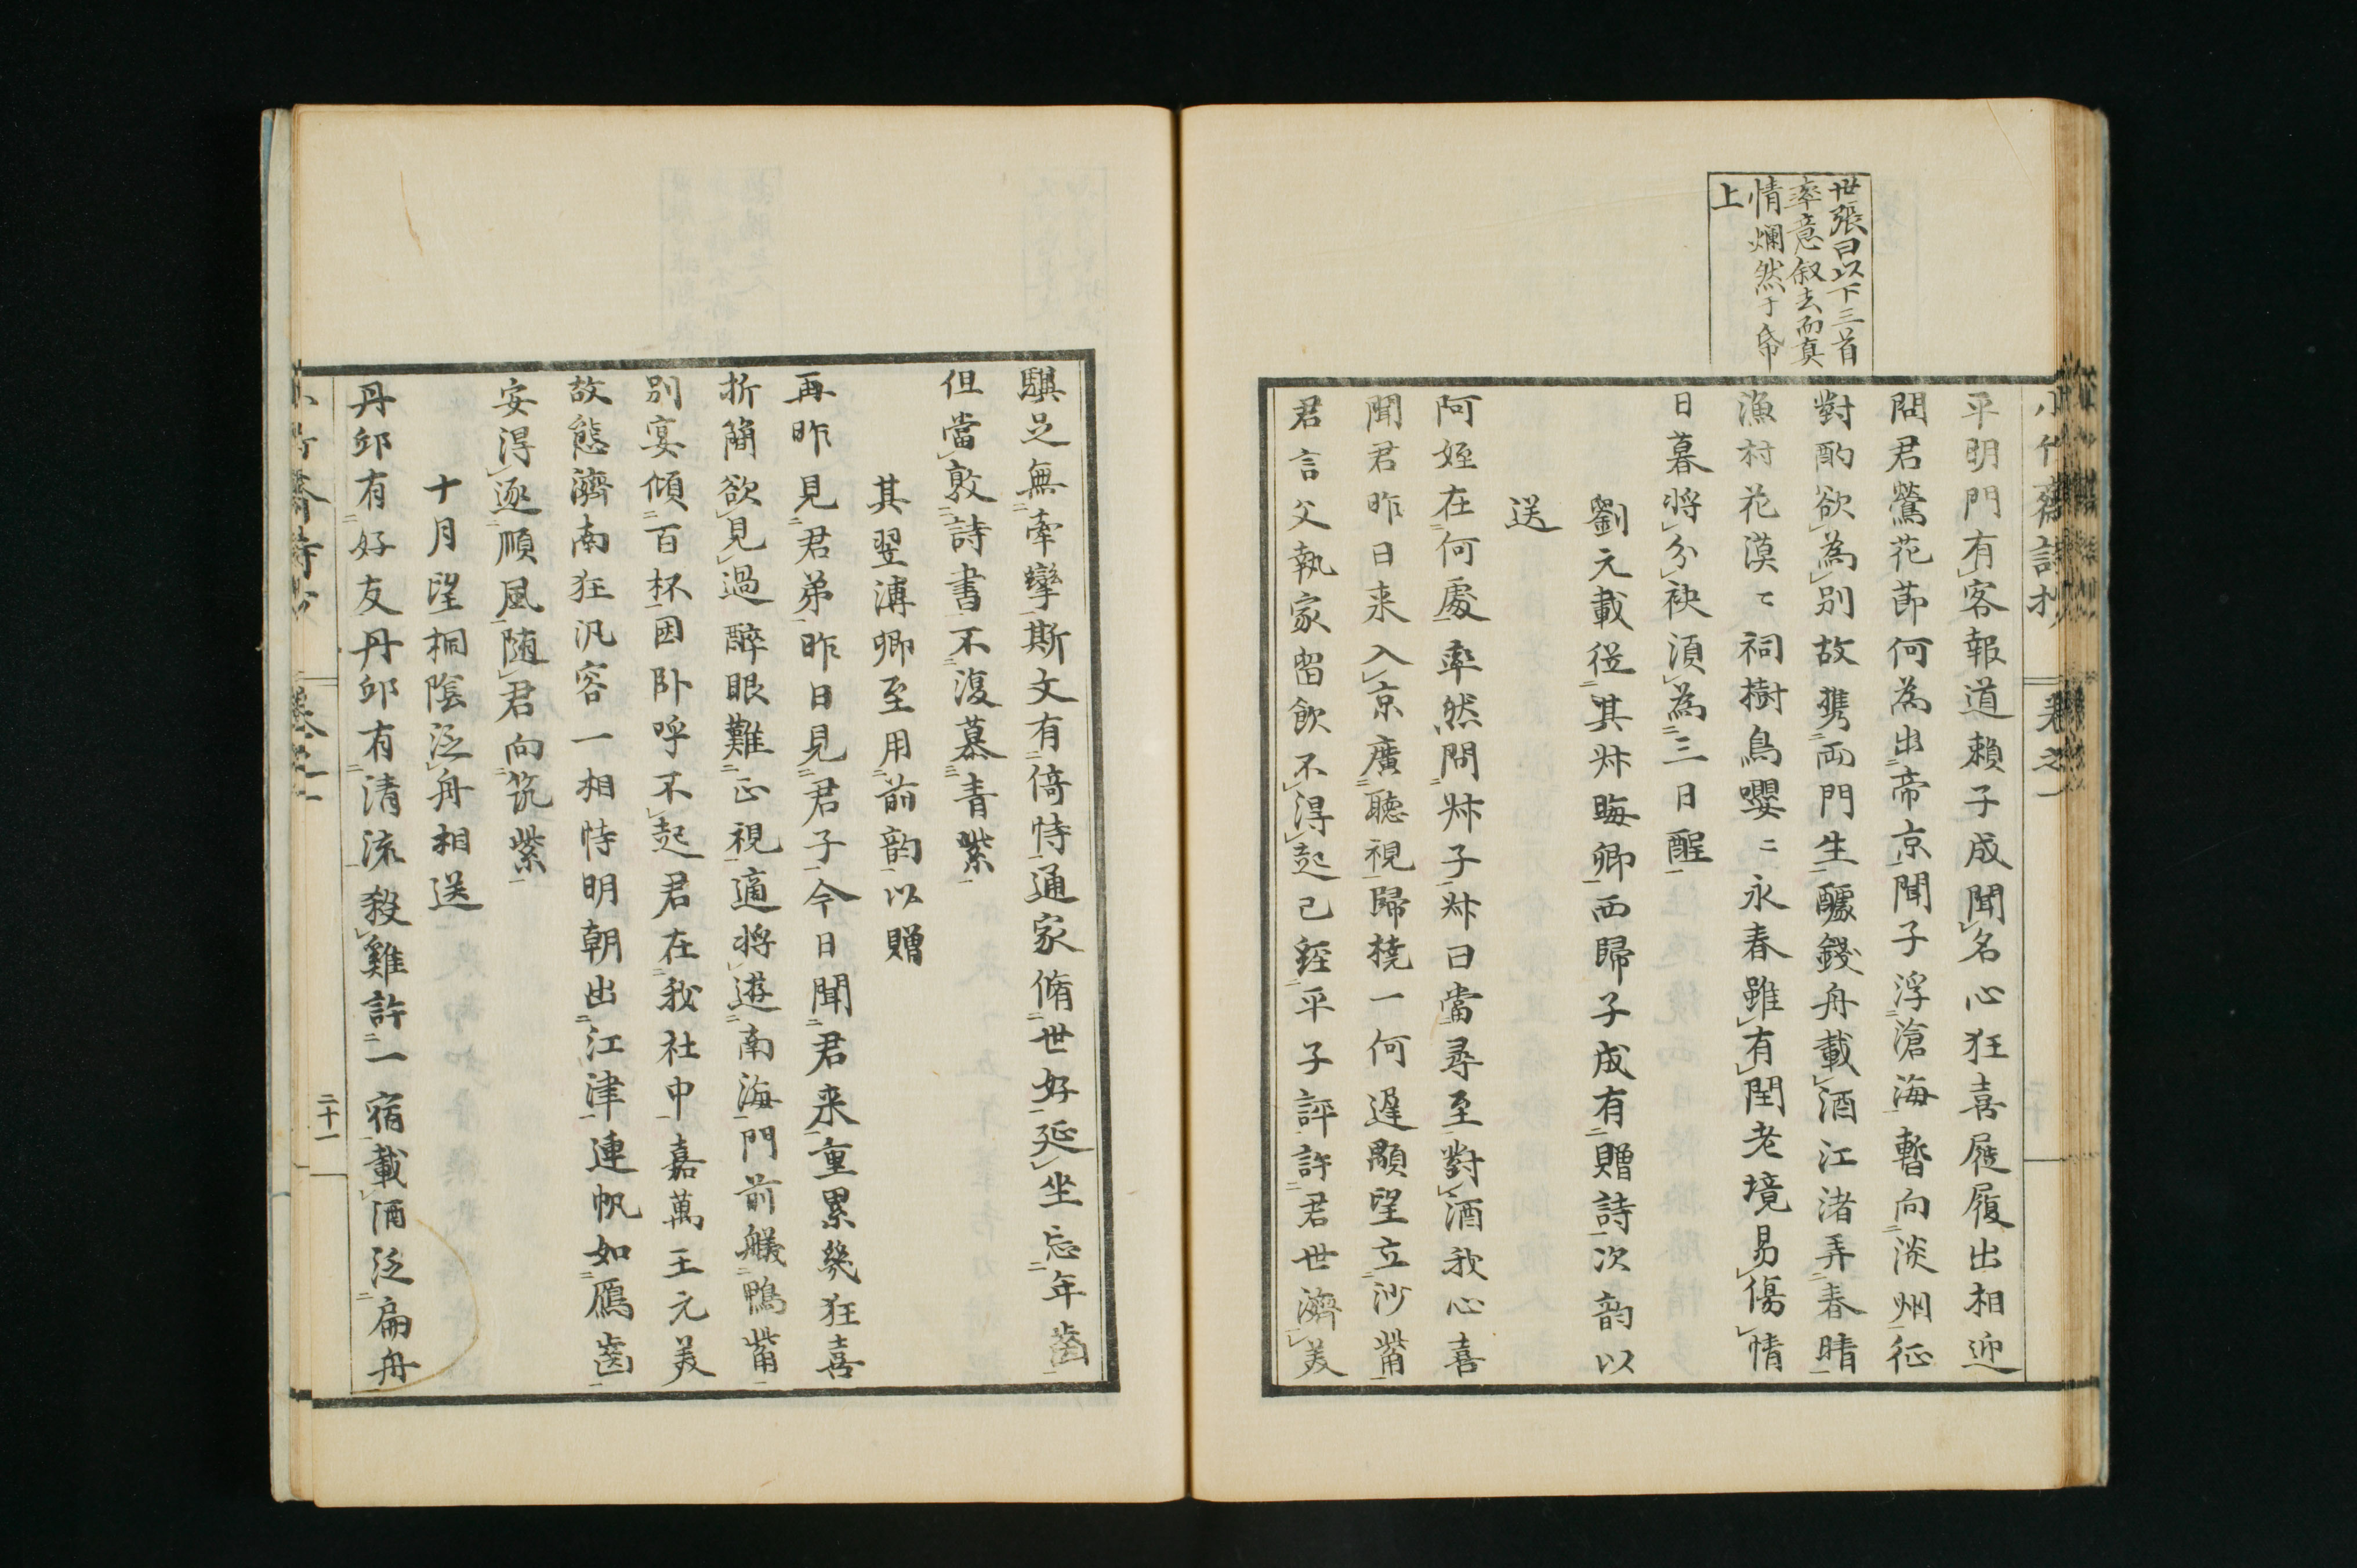 世張曰以下三首
率意叙去而真
情爛然于帋
上
小竹齋詩抄 卷之一
平明門有客報道賴子成聞名心狂喜屐履出相迎
問君鶯花節何為出帝京聞子浮滄海暫向淡州征
對酌欲為別故携両門生醵錢舟載酒江渚弄春晴
漁村花漠〻祠樹鳥嚶〻永春雖有閏老境易傷情
日暮将分袂須為三日酲
劉元載從其叔晦卿西歸子成有贈詩次韵以
送
阿姪在何處率然問叔子叔曰當尋至對酒我心喜
聞君昨日来入京廣聽視歸橈一何遲顒望立沙觜
君言父執家留飲不得起已經平子評許君世濟美
騏足無牽攣斯文有倚恃通家脩世好延坐忘年齒
但當敦詩書不復慕青紫
其翌溥卿至用前韵以贈
再昨見君弟昨日見君子今日聞君来重累幾狂喜
折簡欲見過醉眼難正視適将遊南海門前艤鴨觜
別宴傾百杯困卧呼不起君在我社中嘉萬王元美
故態濟南狂汎容一相恃明朝出江津連帆如鴈齒
安得逐順風随君向筑紫
十月望桐陰泛舟相送
丹邱有好友丹邱有清流殺雞許一宿載酒泛扁舟
小竹齋詩抄 卷之一
二十一